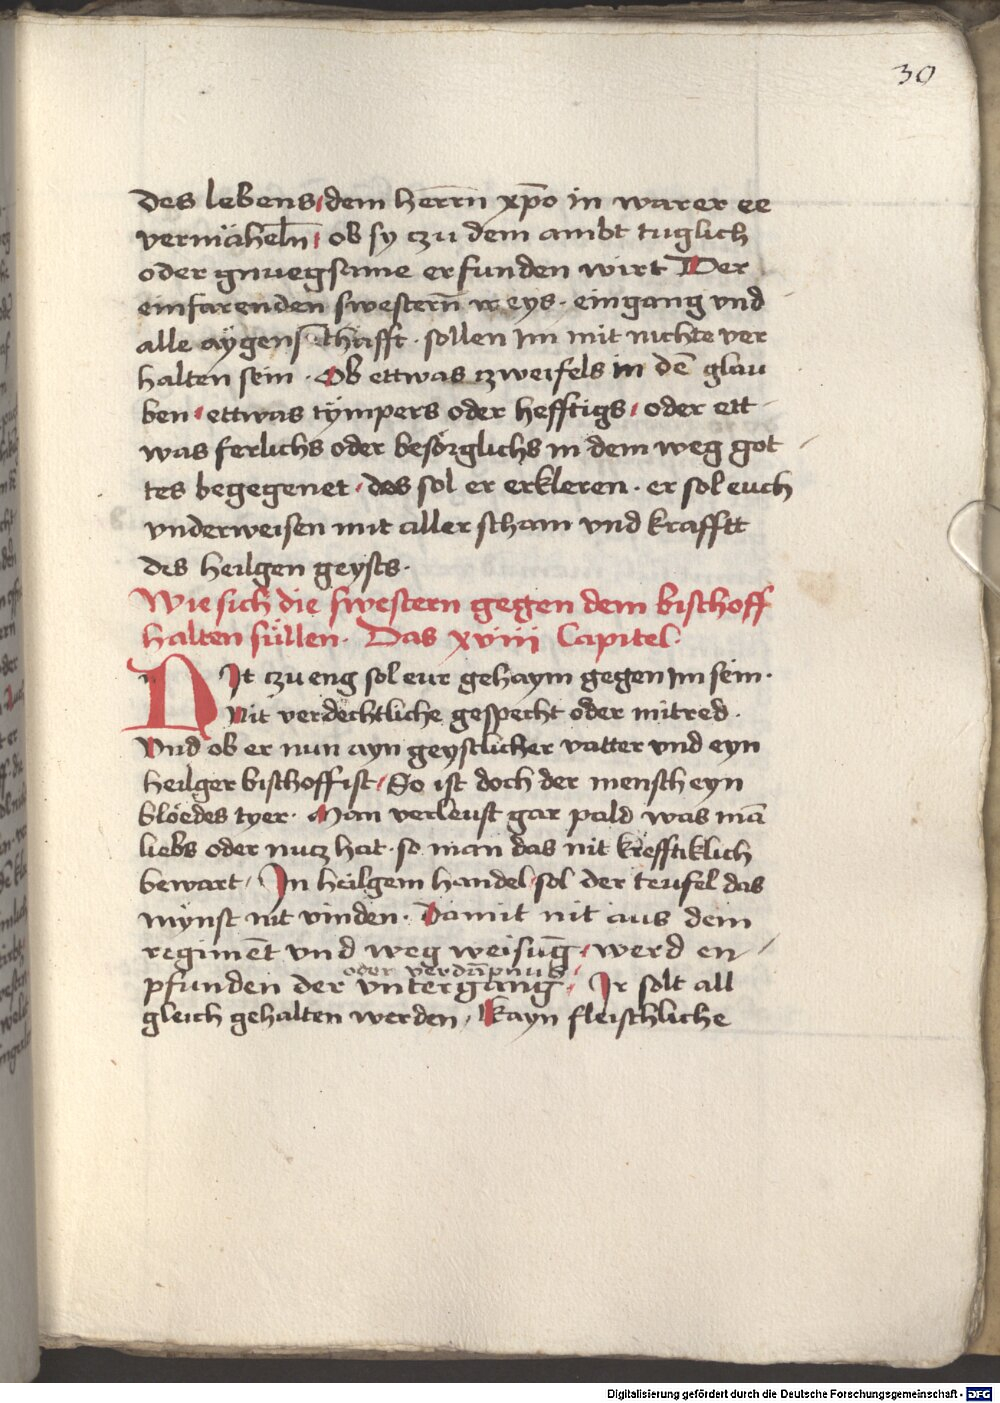 30
des lebens / dem herrn̄ xp̄o in warer ee
vermähel̄n / ob sy czu dem ambt tuglich
oder gnuegsame erfunden wirt Der
einfarenden swestern̄ weys · eingang vnd
alle aÿgenschafft · sollen im mit nichte ver
halten sein · Ob ettwas zweifels in dē glau
ben / ettwas tÿmpers oder hefftigs / oder ett
was ferlichs oder besörglichs in dem weg got
tes begegenet / das sol er erkleren · er sol euch
vnderweisen mit aller scham vnd krafftt
des heilgen geysts ·
Wie sich die swestern gegen dem bischoff
halten süllen · Das xviij Capitel ·
Nit czu eng sol eur gehaym gegen im sein ·
Nit verdechtliche gesprecht oder mitred ·
Vnd ob er nun ayn geystlicher vatter vnd eyn
heilger bischoff ist / So ist doch der mensch eyn
blöedes tyer · Man verleust gar pald was mā
liebs oder nucz hat · so man das nit krefftiklich
bewart / In heilgem handel sol der teufel das
mÿnst nit vinden · Damit nit aus dem
regimēt vnd weg weisūg / werd en
oder verdāpnus
pfunden der vntergang / Ir solt all
gleich gehalten werden / Kayn fleischliche
Digitalisierung gefördert durch die Deutsche Forschungsgemeinschaft - DFG